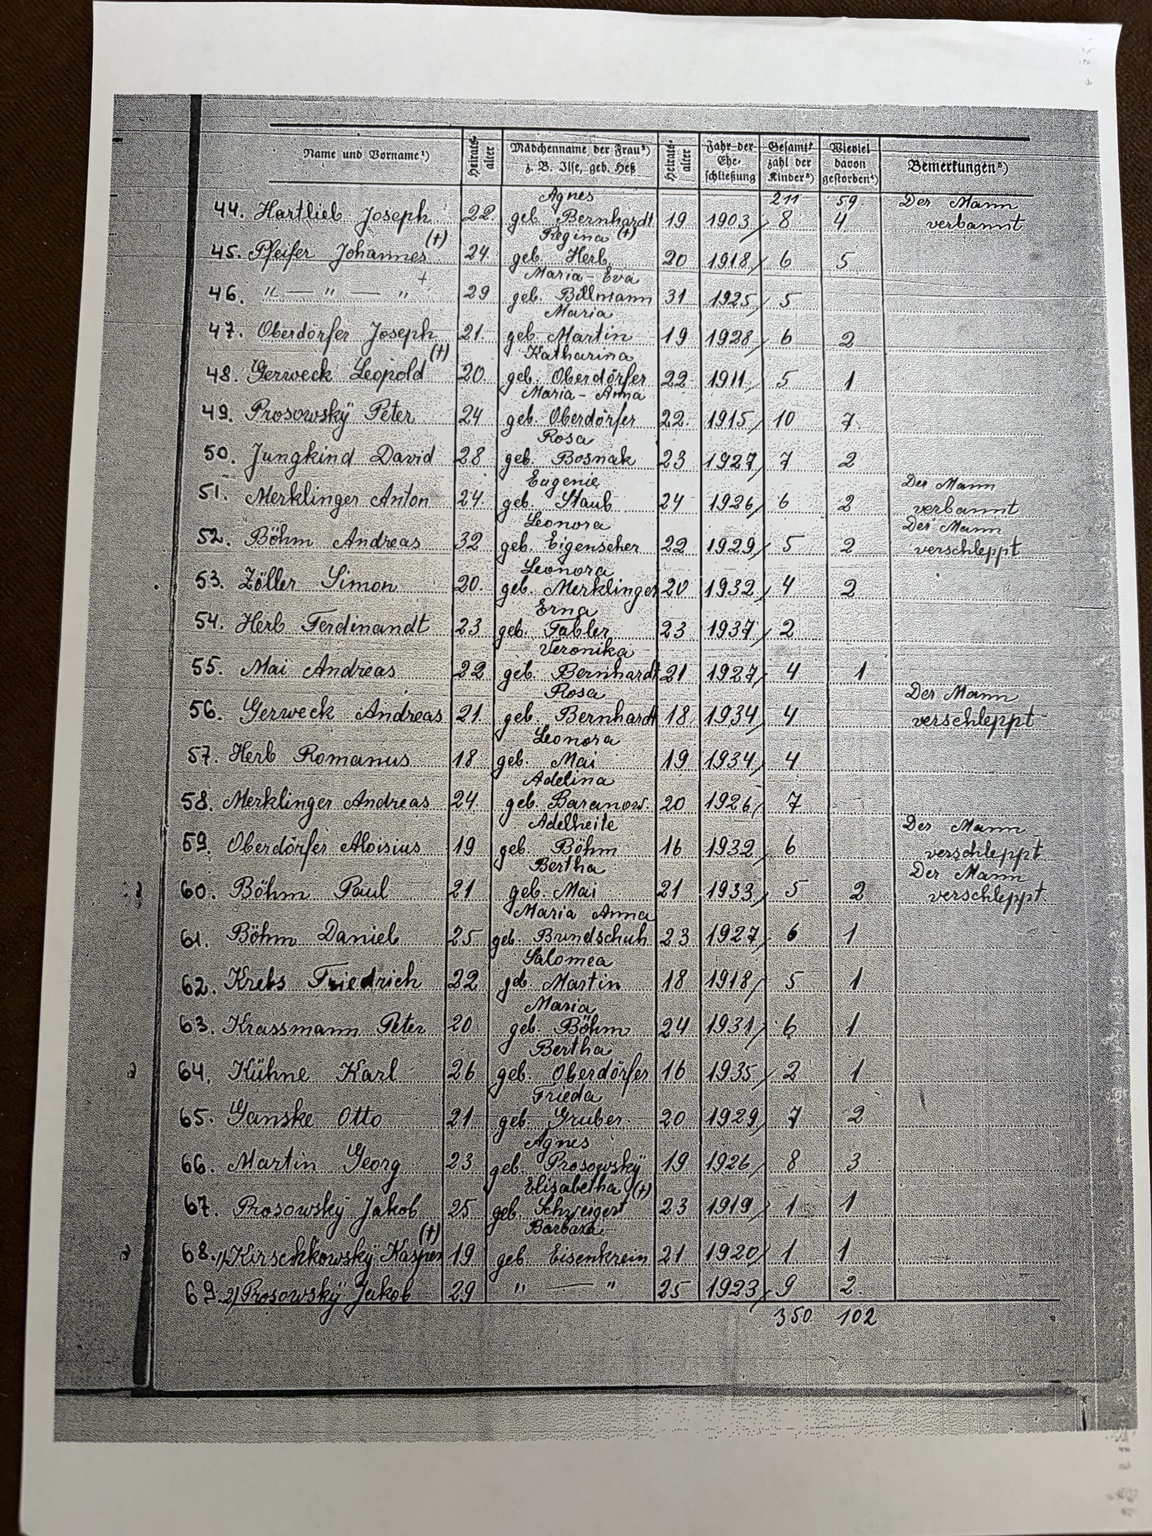 Name und Vorname¹) Heiratsalter Mädchenname der Frau³) z. B. Ilse, geb. Heß Heiratsalter Jahr der Eheschließung Gesamtzahl der Kinder⁴) Wieviel davon gestorben⁴) Bemerkungen⁵)
211 59
44. Hartlieb Joseph 22 Agnes geb. Bernhardt 19 1903 8 4 Der Mann verbannt
45. Pfeifer Johannes (†) 24 Regina (†) geb. Herb 20 1918 6 5
46. " — " — " † 29 Maria-Eva geb. Billmann 31 1925 5
47. Oberdörfer Joseph 21 Maria geb. Martin 19 1928 6 2
48. Gerweck Leopold (†) 20 Katharina geb. Oberdörfer 22 1911 5 1
49. Prosowskÿ Peter 24 Maria-Anna geb. Oberdörfer 22 1915 10 7
50. Jungkind David 28 Rosa geb. Bosnak 23 1927 7 2
51. Merklinger Anton 24 Eugenie geb. Staub 24 1926 6 2 Der Mann verbannt
52. Böhm Andreas 32 Leonora geb. Eigenseher 22 1929 5 2 Der Mann verschleppt
53. Zöller Simon 20 Leonora geb. Merklinger 20 1932 4 2
54. Herb Ferdinandt 23 Erna geb. Fabler 23 1937 2
55. Mai Andreas 22 Veronika geb. Bernhardt 21 1927 4 1
56. Gerweck Andreas 21 Rosa geb. Bernhardt 18 1934 4 Der Mann verschleppt
57. Herb Romanus 18 Leonora geb. Mai 19 1934 4
58. Merklinger Andreas 24 Adelina geb. Baranow. 20 1926 7
59. Oberdörfer Aloisius 19 Adelheite geb. Böhm 16 1932 6 Der Mann verschleppt
60. Böhm Paul 21 Bertha geb. Mai 21 1933 5 2 Der Mann verschleppt
61. Böhm Daniel 25 Maria Anna geb. Bundschuh 23 1927 6 1
62. Krebs Friedrich 22 Salomea geb. Martin 18 1918 5 1
63. Krassmann Peter 20 Maria geb. Böhm 24 1931 6 1
64. Kühne Karl 26 Bertha geb. Oberdörfer 16 1935 2 1
65. Ganske Otto 21 Frieda geb. Gruber 20 1929 7 2
66. Martin Georg 23 Agnes geb. Prosowskÿ 19 1926 8 3
67. Prosowskÿ Jakob 25 Elisabetha (†) geb. Schweigert 23 1919 1 1
68. 1) Kirschkowskÿ Kasper (†) 19 Barbara geb. Eisenkrein 21 1920 1 1
69. 2) Prosowskÿ Jakob 29 " — " 25 1923 9 2
350 102